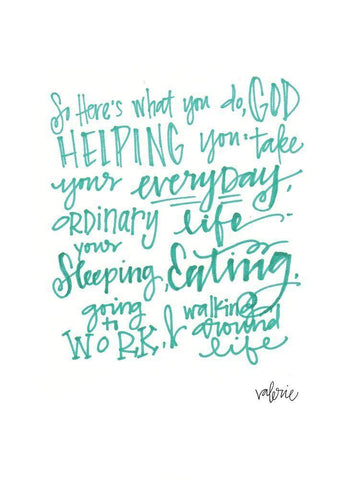 So Here's what you do, GOD
HELPING you: take
your everyday,
ORDINARY life -
your
Sleeping, Eating,
going to WORK, & walking around life
valerie